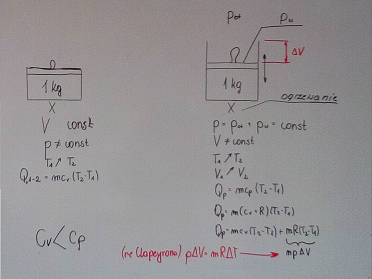 1 kg
X
V const
p ≠ const
T₁ ↗ T₂
Q₁₋₂ = mcᵥ(T₂-T₁)
Cᵥ < Cp
pot
ΔV
1 kg
X
ogrzewanie
p = pot + = const
V ≠ const
T₁ ↗ T₂
V₁ ↗ V₂
Qp = mcp(T₂-T₁)
Qp = m(cᵥ+R)(T₂-T₁)
Qp = mcᵥ(T₂-T₁) + mR(T₂-T₁)
Clapeyrona) pΔV = mRΔT → mpΔV